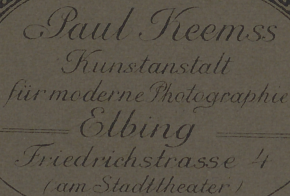 Paul Keemss
Kunstanstalt
für moderne Photographie
Elbing
Friedrichstrasse 4
(am Stadttheater)